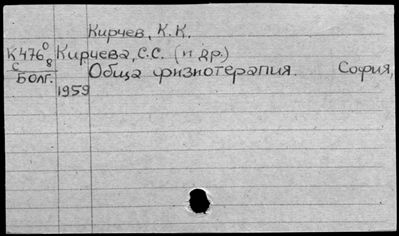 Кирчев, К.К.
К476 0/8 Кирчева, С.С. (и др.)
с Болг. Обща физиотерапия. София,
1959